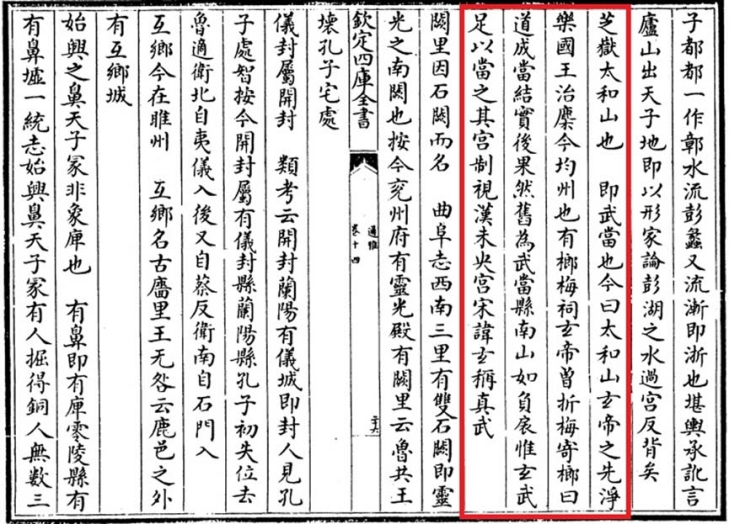 子都都一作鄣水流彭蠡又流漸即浙也堪輿承訛言
廬山出天子地即以形家論彭湖之水過宮反背矣
芝嶽太和山也　即武當也今曰太和山玄帝之先淨
樂國王治麇今均州也有榔梅祠玄帝曾折梅寄榔曰
道成當結實後果然舊為武當縣南山如負扆惟玄武
足以當之其宮制視漢未央宮宋諱玄稱真武
闕里因石闕而名　曲阜志西南三里有雙石闕即靈
光之南闕也按今兖州府有靈光殿有闕里云魯共王
壞孔子宅處
欽定四庫全書
通雅
卷十四
二十六
儀封屬開封　類考云開封蘭陽有儀城即封人見孔
子處智按今開封屬有儀封縣蘭陽縣孔子初失位去
魯適衛北自夷儀入後又自蔡反衛南自石門入
互鄉今在睢州　互鄉名古廧里王无咎云鹿邑之外
有互鄉城
始興之鼻天子冢非象庳也　有鼻即有庳零陵縣有
有鼻墟一統志始興鼻天子冢有人掘得銅人無數三